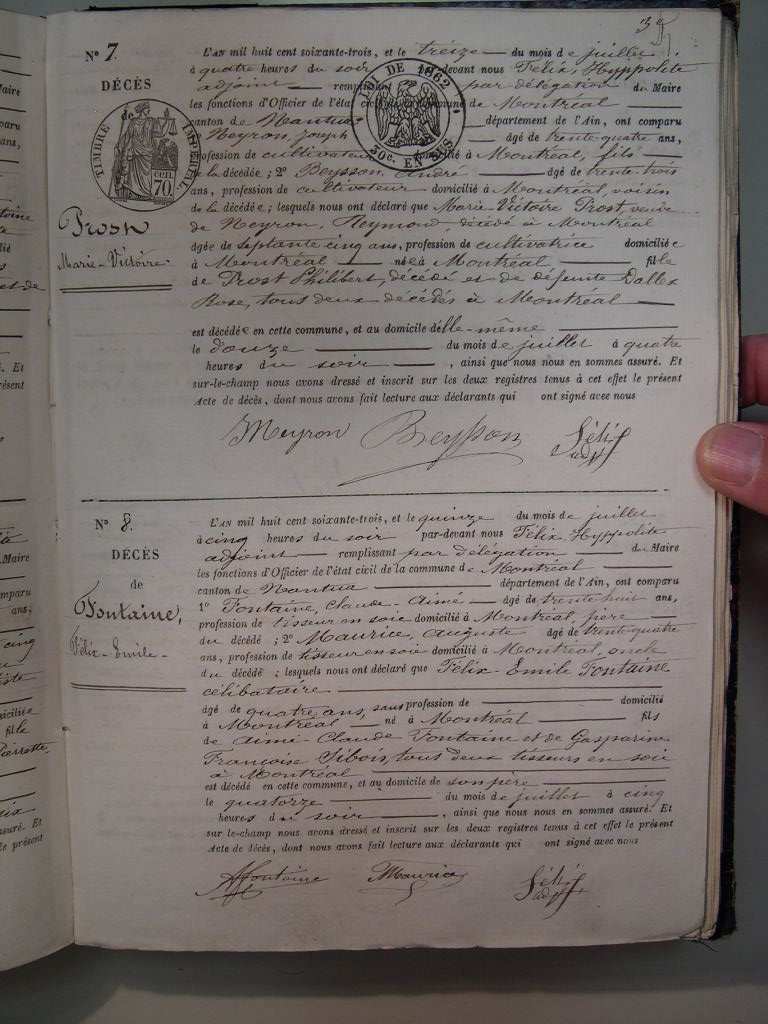 N° 7.
DÉCÈS
de
TIMBRE IMPERIAL
70 cen
LOI DE 1862
50c. EN SUS
Prost
Marie-Victoire
L'AN mil huit cent soixante-trois, et le treize du mois de juillet
à quatre heures du soir par-devant nous Félix, Hyppolite
adjoint remplissant par délégation du Maire
les fonctions d'Officier de l'état civil de la commune de Montréal
canton de Nantua département de l'Ain, ont comparu
Joseph âgé de trente-quatre ans,
profession de cultivateur domicilié à Montréal, fils
de la décédée ; 2° Beysson, André âgé de trente-trois
ans, profession de cultivateur domicilié à Montréal voisin
de la décédée ; lesquels nous ont déclaré que Marie-Victoire Prost veuve
de décédé à Montréal
âgée de septante cinq ans, profession de cultivatrice domiciliée
à Montréal née à Montréal fille
de Prost Philibert, décédé et de défunte Dallex
Rose, tous deux décédés à Montréal
est décédée en cette commune, et au domicile d'elle-même
le douze du mois de juillet à quatre
heures du soir , ainsi que nous nous en sommes assuré. Et
sur-le-champ nous avons dressé et inscrit sur les deux registres tenus à cet effet le présent
Acte de décès, dont nous avons fait lecture aux déclarants qui ont signé avec nous
Meyron Beysson Félix
adjt
N° 8.
DÉCÈS
de
Fontaine,
Félix-Emile
L'AN mil huit cent soixante-trois, et le quinze du mois de juillet
à cinq heures du soir par-devant nous Félix, Hyppolite
adjoint remplissant par délégation du Maire
les fonctions d'Officier de l'état civil de la commune de Montréal
canton de Nantua département de l'Ain, ont comparu
1° Fontaine, Claude-Aimé âgé de trente-huit ans,
profession de tisseur en soie domicilié à Montréal, père
du décédé ; 2° Maurice, Auguste âgé de trente-quatre
ans, profession de tisseur en soie domicilié à Montréal, oncle
du décédé ; lesquels nous ont déclaré que Félix-Emile Fontaine
célibataire
âgé de quatre ans, sans profession de domicilié
à Montréal né à Montréal fils
de Aimé-Claude Fontaine et de Gasparine
Françoise Sibois, tous deux tisseurs en soie
à Montréal
est décédé en cette commune, et au domicile de son père
le quatorze du mois de juillet à cinq
heures du soir , ainsi que nous nous en sommes assuré. Et
sur-le-champ nous avons dressé et inscrit sur les deux registres tenus à cet effet le présent
Acte de décès, dont nous avons fait lecture aux déclarants qui ont signé avec nous
Fontaine Maurice Félix
adjt